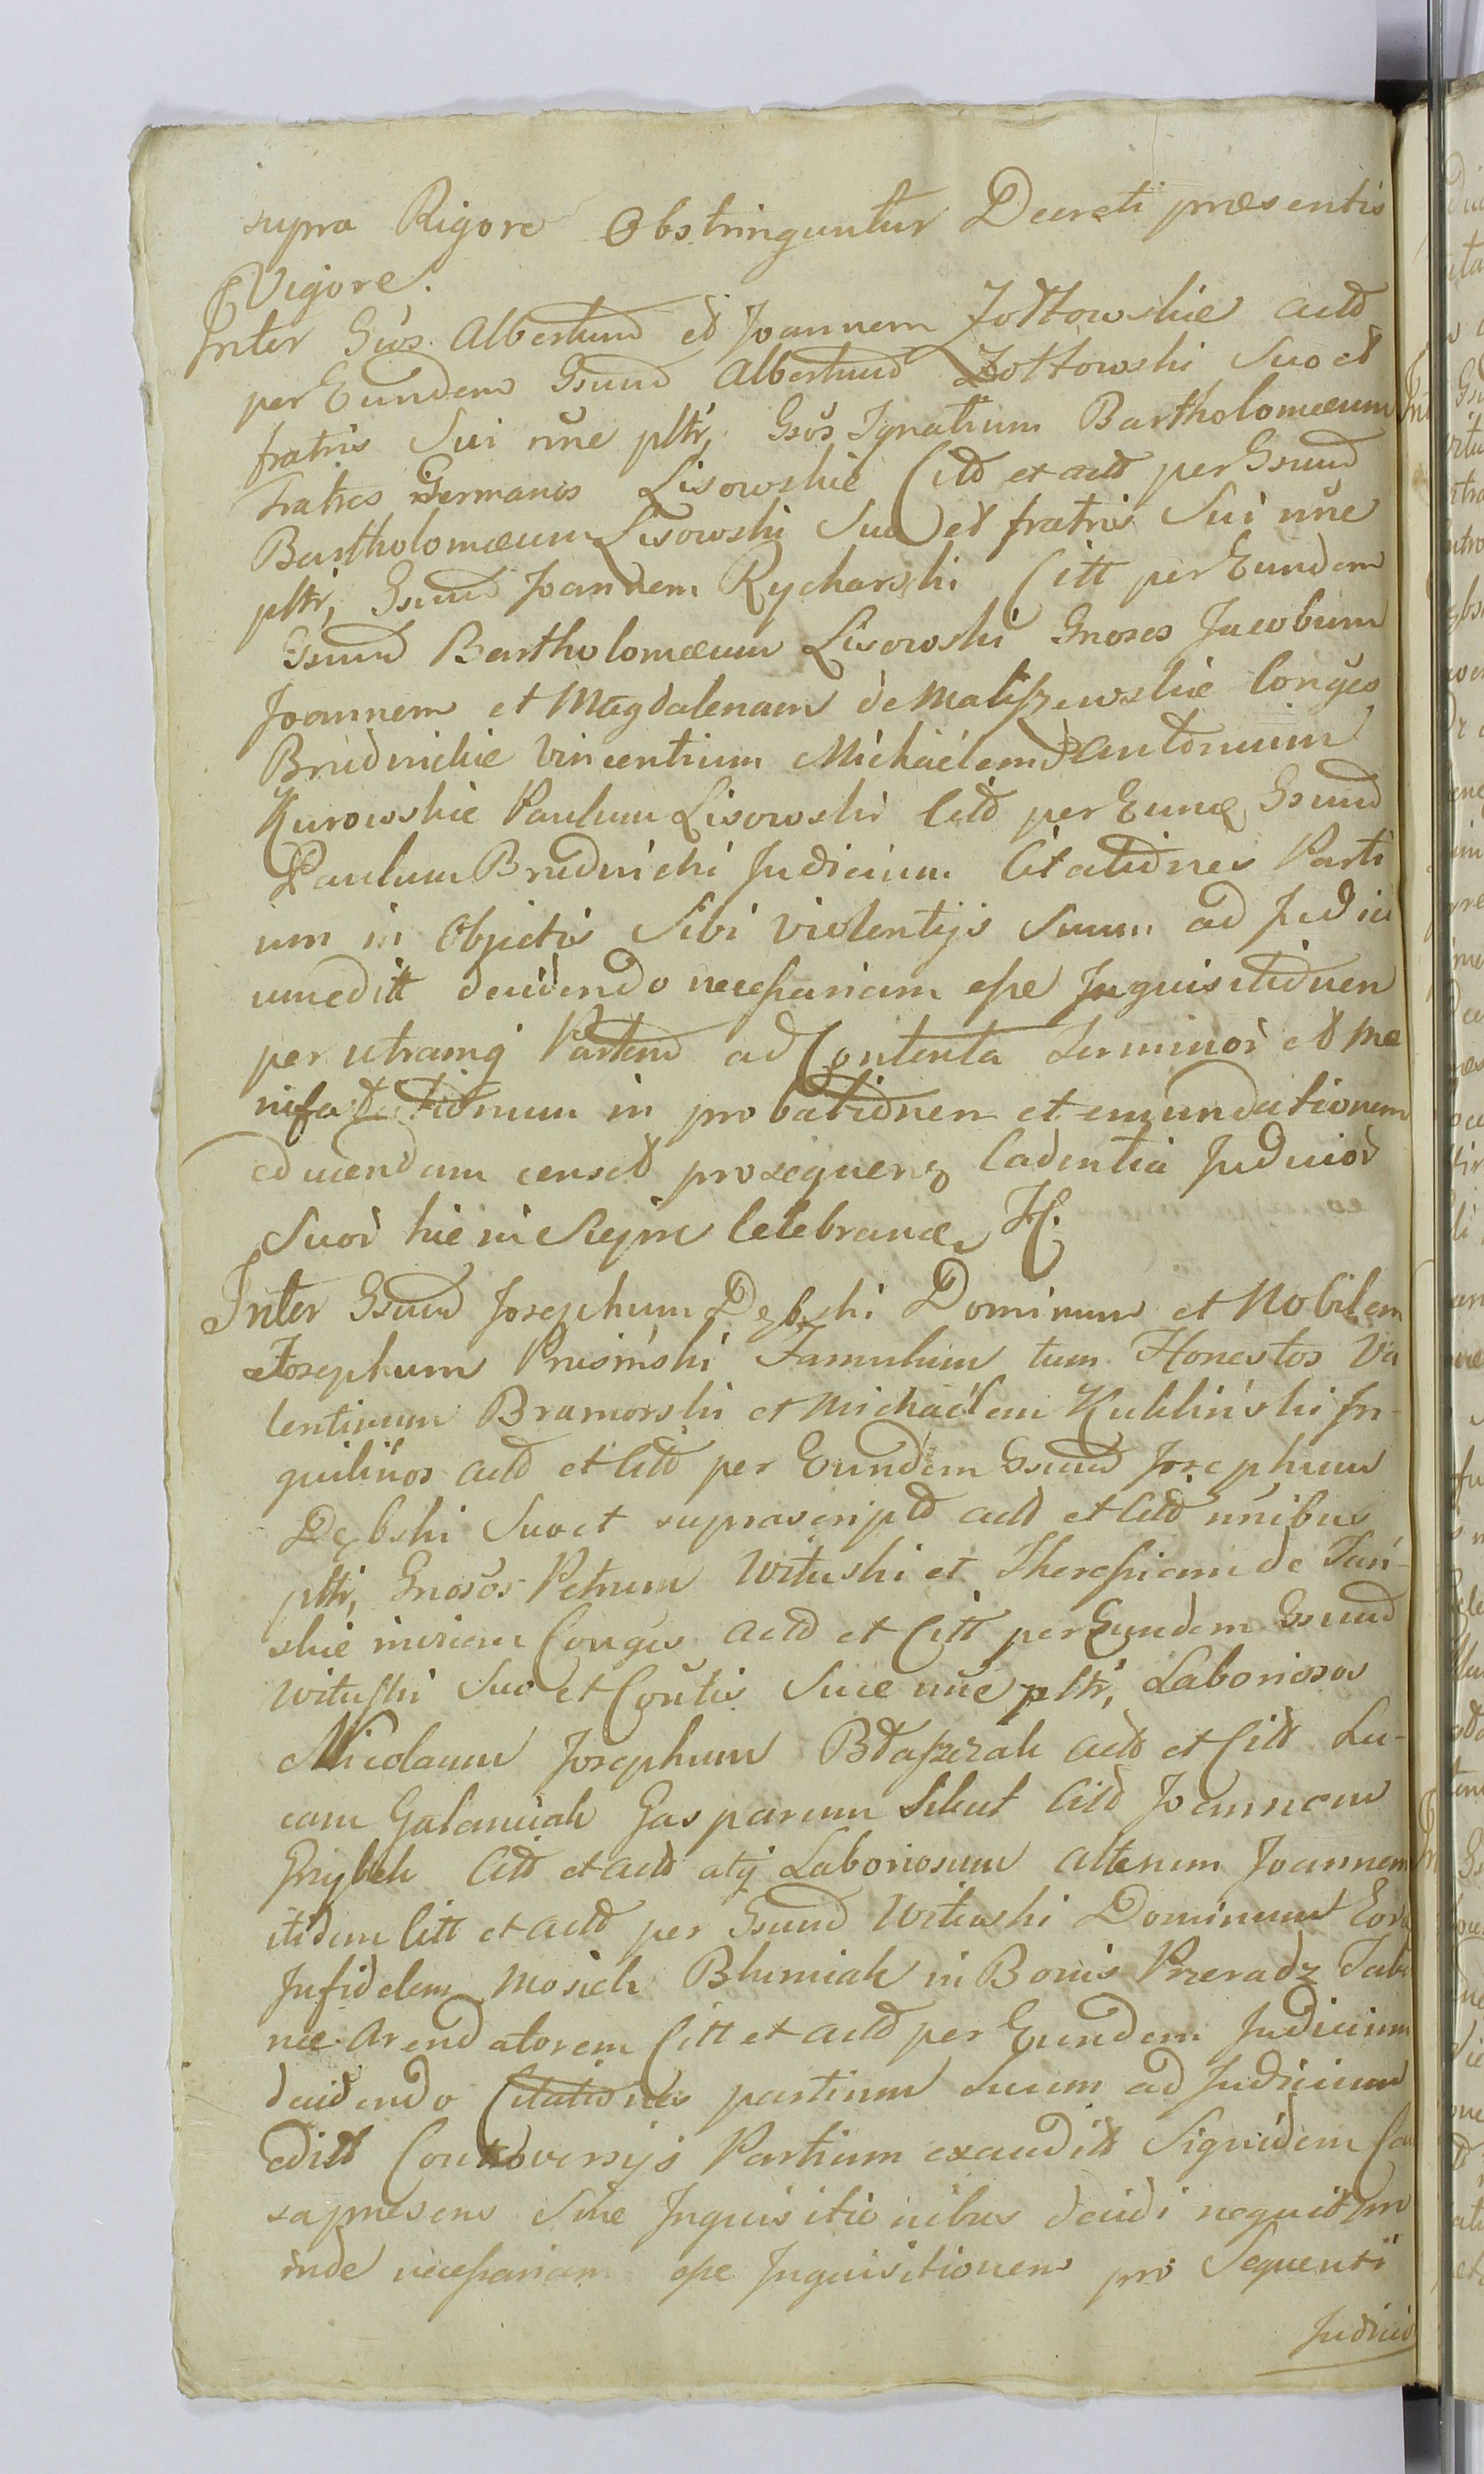 supra Rigore Obstringuntur Decreti præsentis
Vigore.
Inter Gsos Albertum et Joannem Zołtowskie actt
per Eundem Gsum Albertum Zołtowski Suo et
fratris Sui nñe pltr, Gsos Ignatium Bartholomæum
Fratres Germanos Lisowskie Citt et actt per Gsum
Bartholomæum Lisowski Suo et fratris Sui nñe
pltr, Gsum Joannem Rycharski Citt per Eundem
Gsum Bartholomæum Lisowski Gnosos Jacobum
Joannem et Magdalenam de Maliszewskie Conges
Brudnickie Vincentium Michaëlem Antonium
Kurowskie Paulum Lisowski Citt per Eund Gsum
Paulum Brudnicki Judicium Citationes Parti
um in Objectis Sibi violentijs Suum ad Judici
um editt decidendo necessariam esse Inquisitionem
per utramq Partem ad Contenta Terminor et Ma
nifestationum in probationem et emundationem
educendam censet prosequend Cadentia Judicior
Suor hic in Sierpc celebrand
Inter Gsum Josephum Dębski Dominum et Nobilem
Josephum Prusinski Famulum tum Honestos Va
lentinum Bramorski et Michaëlem Kukliński In-
quilinos actt et Citt per Eundem Gsum Josephum
Dębski Suo et suprascript actt et Citt nñibus
pltr, Gnosos Petrum Wituski et Theressiam de Tań-
skie invicem Conges actt et Citt per Eundem Gsum
Wituski Suo et Contis Suæ nñe pltr, Laboriosos
Nicolaum Josephum Błaszczak actt et Citt Lu-
cam Galanciak Gasparum Sikut Citt Joannem
Grzybek Citt et actt atq Laboriosum alterum Joannem
itidem Citt et actt per Gsum Wituski Dominum Eor
Infidelem Mosiek Blumiak in Bonis Przeradz Tabe
næ Arendatorem Citt et actt per Eundem Judicium
decidendo Citationes partium Suum ad Judicium
editt Controversijs Partium exauditt Siquidem Cau
sa præsens Sine Inquisitionibus decidi nequit pro
inde necessariam esse Inquisitionem pro Sequenti
Judicio